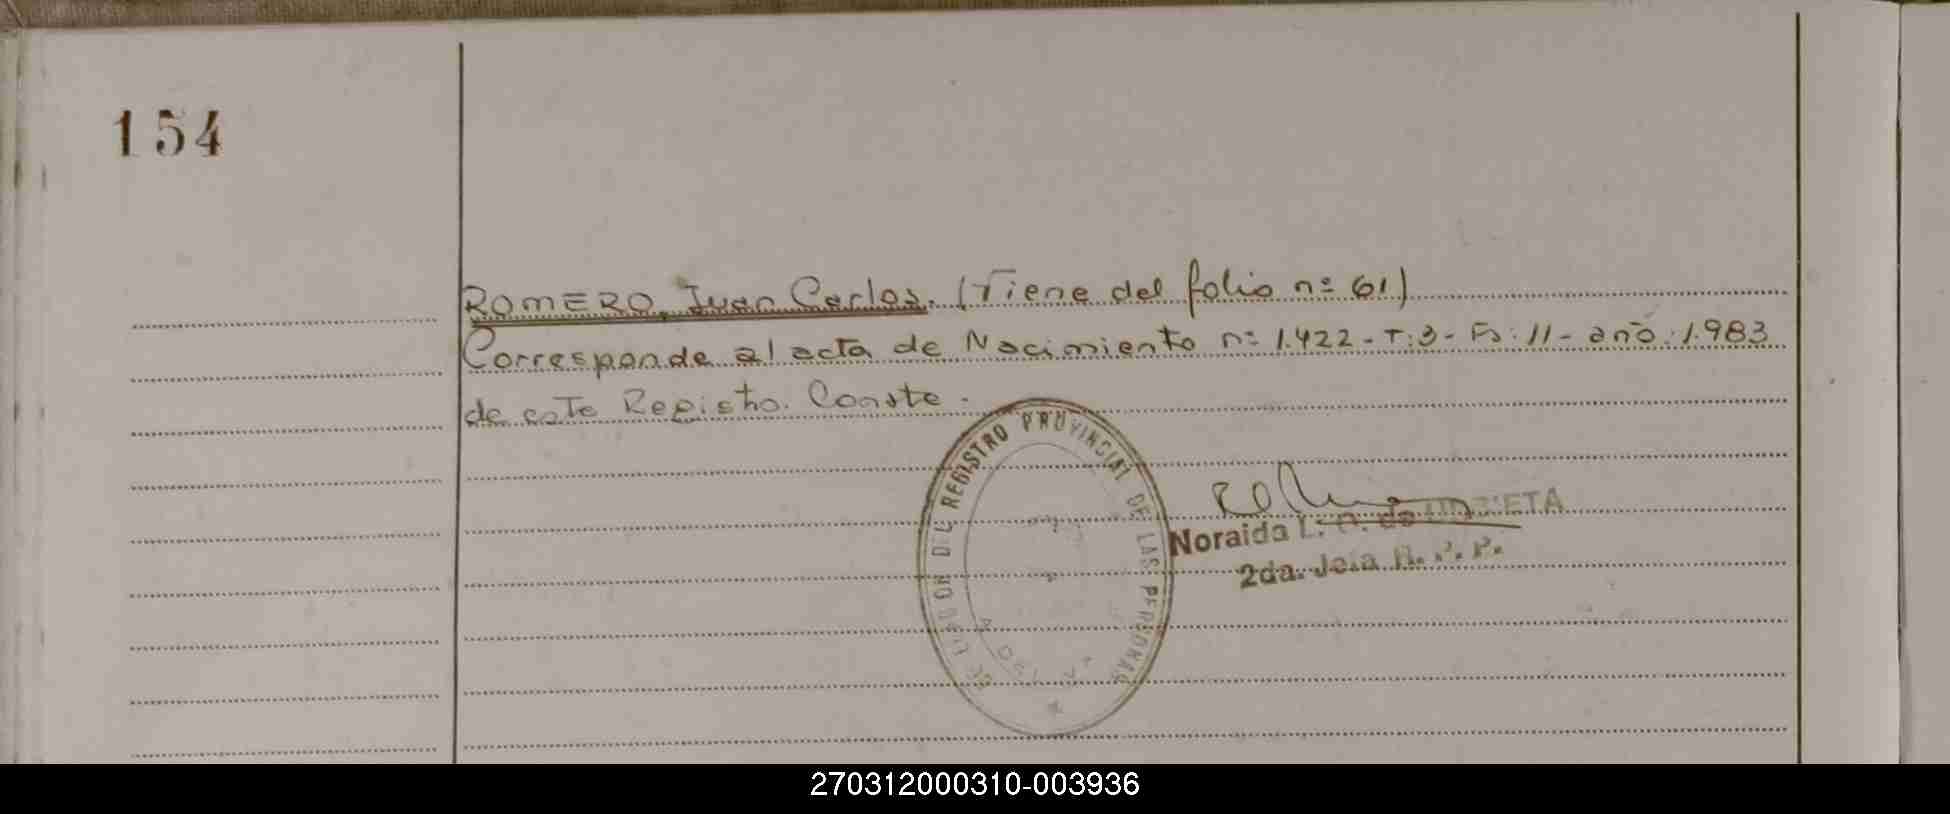 154
ROMERO, Juan Carlos. (Tiene del folio nº 61)
Corresponde al acta de Nacimiento nº 1.422 - T:3 - Fs: 11 - año: 1.983
de este Registro. Conste.
DEL REGISTRO PROVINCIAL DE LAS PERSONAS
Noraida L. de
2da. Jefa R. P. P.
270312000310-003936